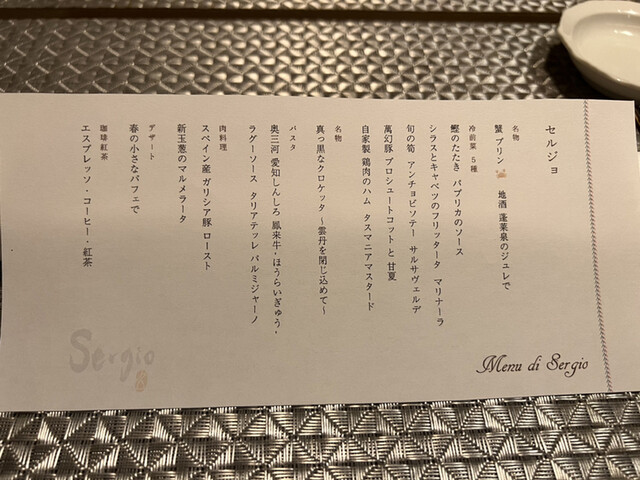 セルジョ
名物
蟹プリン 地酒 蓬莱泉のジュレで
冷前菜 5種
鰹のたたき パプリカのソース
シラスとキャベツのフリッタータ マリナーラ
旬の筍 アンチョビソテー サルサヴェルデ
萬幻豚 プロシュートコットと甘夏
自家製 鶏肉のハム タスマニアマスタード
名物
真っ黒なクロケッタ ~雲丹を閉じ込めて~
パスタ
奥三河 愛知しんしろ 鳳来牛・ほうらいぎゅう・
ラグーソース タリアテッレ パルミジャーノ
肉料理
スペイン産 ガリシア豚 ロースト
新玉葱のマルメラータ
デザート
春の小さなパフェで
珈琲紅茶
エスプレッソ・コーヒー・紅茶
Menu di Sergio
Sergio